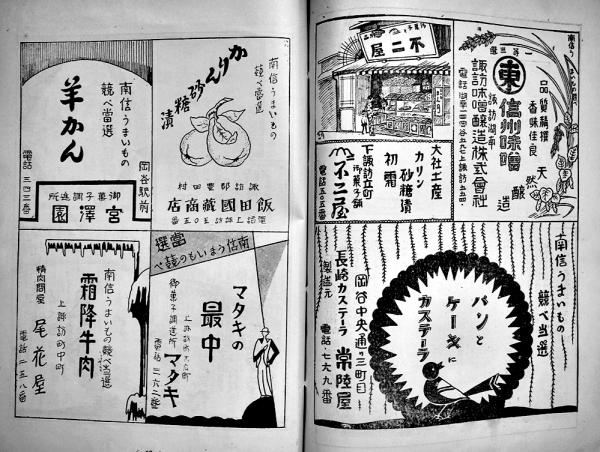 南信うまいもの
一等當選
東
信州味噌
諏訪湖畔
諏訪味噌醸造株式會社
品質精撰
香味佳良
天然醸造
不二屋
大社土産
カリン
砂糖漬
初霜
下諏訪立町
御菓子舗
不二屋
電話五〇五番
南信うまいもの
競べ當選
パンと
ケーキに
カステーラ
岡谷中央通り三町目
長崎カステーラ
製造元
常陸屋
電話・七六九番
南信うまいもの
競べ當選
かりん砂糖漬
諏訪郡豊田村
飯田國藏商店
電話上諏訪五〇五番
南信うまいもの
競べ當選
羊かん
岡谷駅前
御菓子調進所
宮澤園
電話三四二番
南信うまいもの競べ
當選
マタキの
最中
御菓子調進所
マタキ
電話三六二番
南信うまいもの競べ當選
霜降牛肉
上諏訪町中町
精肉問屋
尾花屋
電話二五八番